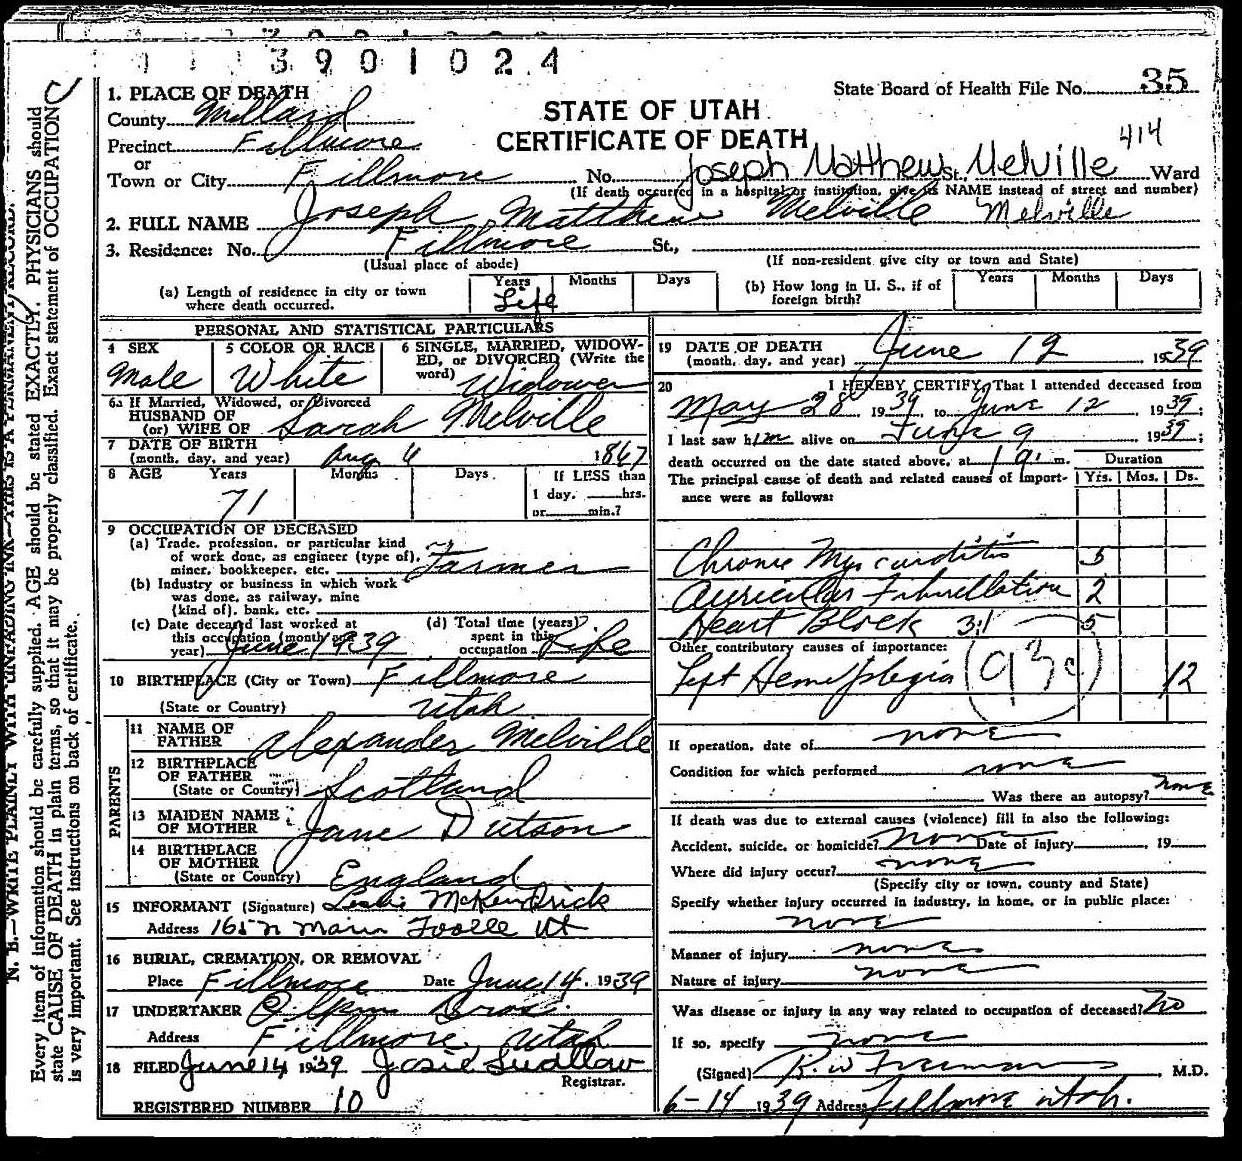 3901024
State Board of Health File No. 35
1. PLACE OF DEATH
STATE OF UTAH
County Millard
CERTIFICATE OF DEATH 414
Precinct Fillmore
or
Town or City Fillmore No. Joseph Matthew St. Melville Ward
(If death occurred in a hospital or institution, give its NAME instead of street and number)
2. FULL NAME Joseph Matthew Melville Melville
3. Residence: No. Fillmore St.,
(Usual place of abode) (If non-resident give city or town and State)
(a) Length of residence in city or town where death occurred. Years Life Months Days
(b) How long in U. S., if of foreign birth? Years Months Days
PERSONAL AND STATISTICAL PARTICULARS
4 SEX Male
5 COLOR OR RACE White
6 SINGLE, MARRIED, WIDOWED, or DIVORCED (Write the word) Widower
6a If Married, Widowed, or Divorced
HUSBAND OF
(or) WIFE OF Sarah Melville
7 DATE OF BIRTH
(month, day, and year) Aug 4 1867
8 AGE Years 71 Months Days
If LESS than
1 day. hrs.
or min.?
9 OCCUPATION OF DECEASED
(a) Trade, profession, or particular kind
of work done, as engineer (type of),
miner, bookkeeper, etc. Farmer
(b) Industry or business in which work
was done, as railway, mine
(kind of), bank, etc.
(c) Date deceased last worked at
this occupation (month and
year) June 1939
(d) Total time (years)
spent in this
occupation Life
10 BIRTHPLACE (City or Town) Fillmore
(State or Country) Utah
PARENTS
11 NAME OF
FATHER Alexander Melville
12 BIRTHPLACE
OF FATHER
(State or Country) Scotland
13 MAIDEN NAME
OF MOTHER Jane Dutson
14 BIRTHPLACE
OF MOTHER
(State or Country) England
15 INFORMANT (Signature) Leslie McKendrick
Address 165 N Main Tooele Ut
16 BURIAL, CREMATION, OR REMOVAL
Place Fillmore Date June 14, 1939
17 UNDERTAKER Bros.
Address Fillmore, Utah
18 FILED June 14 1939 Josie Ludlow
Registrar.
REGISTERED NUMBER 10
19 DATE OF DEATH
(month, day, and year) June 12 1939
20 I HEREBY CERTIFY, That I attended deceased from
May 28 1939 to June 12 1939;
I last saw him alive on June 9 1939;
death occurred on the date stated above, at m.
Duration
The principal cause of death and related causes of importance were as follows:
Yrs. Mos. Ds.
Chronic Myocarditis 5
Auricular Fibrillation 2
Heart Block 3:1 5
Other contributory causes of importance:
Left Hemiplegia 12
(93c)
If operation, date of none
Condition for which performed none
Was there an autopsy? none
If death was due to external causes (violence) fill in also the following:
Accident, suicide, or homicide? none Date of injury 19
Where did injury occur? none
(Specify city or town, county and State)
Specify whether injury occurred in industry, in home, or in public place:
none
Manner of injury none
Nature of injury none
Was disease or injury in any way related to occupation of deceased? No
If so, specify none
(Signed) R. W Freeman, M.D.
6-14 1939 Address Fillmore Utah.
N. B.—WRITE PLAINLY WITH UNFADING INK—THIS IS A PERMANENT RECORD.
Every item of information should be carefully supplied. AGE should be stated EXACTLY. PHYSICIANS should
state CAUSE OF DEATH in plain terms, so that it may be properly classified. Exact statement of OCCUPATION
is very important. See instructions on back of certificate.